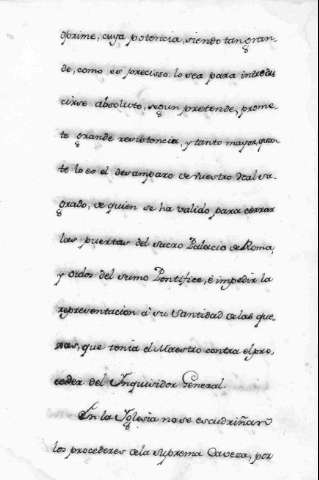 oprime, cuya potencia, siendo tan gran-
de, como es precisso lo sea para introdu-
cirse absoluto, segun pretende, prome-
te grande resistencia, y tanto mayor, quan-
te lo es el desamparo de nuestro Real sa-
grado, de quien se ha valido para cerrar
las puertas del sacro Palacio de Roma,
y oidos del sumo Pontifice, è impedir la
representacion à su Santidad de las que-
xas, que tenia el Maestro contra el pro-
ceder del Inquisidor General.
En la Iglesia no se escudriñan
los procederes de la suprema Caveza, por